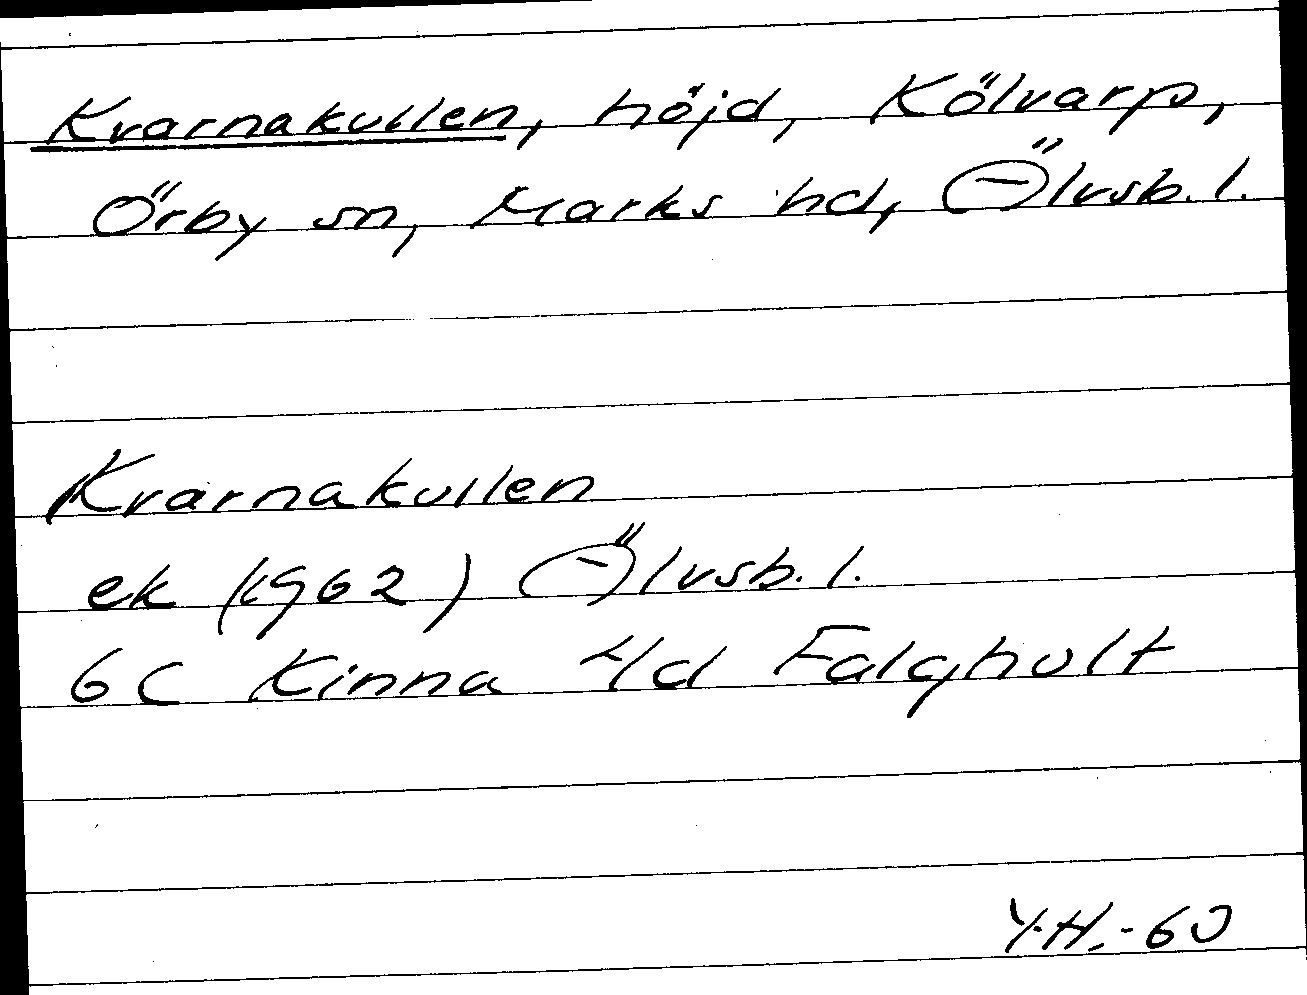 Kvarnakullen, höjd, Kölvarp,
Örby sn, Marks hd, Älvsb. l.
Kvarnakullen
ek (1962) Älvsb. l.
6C Kinna 4d Falghult
Y.H.-60